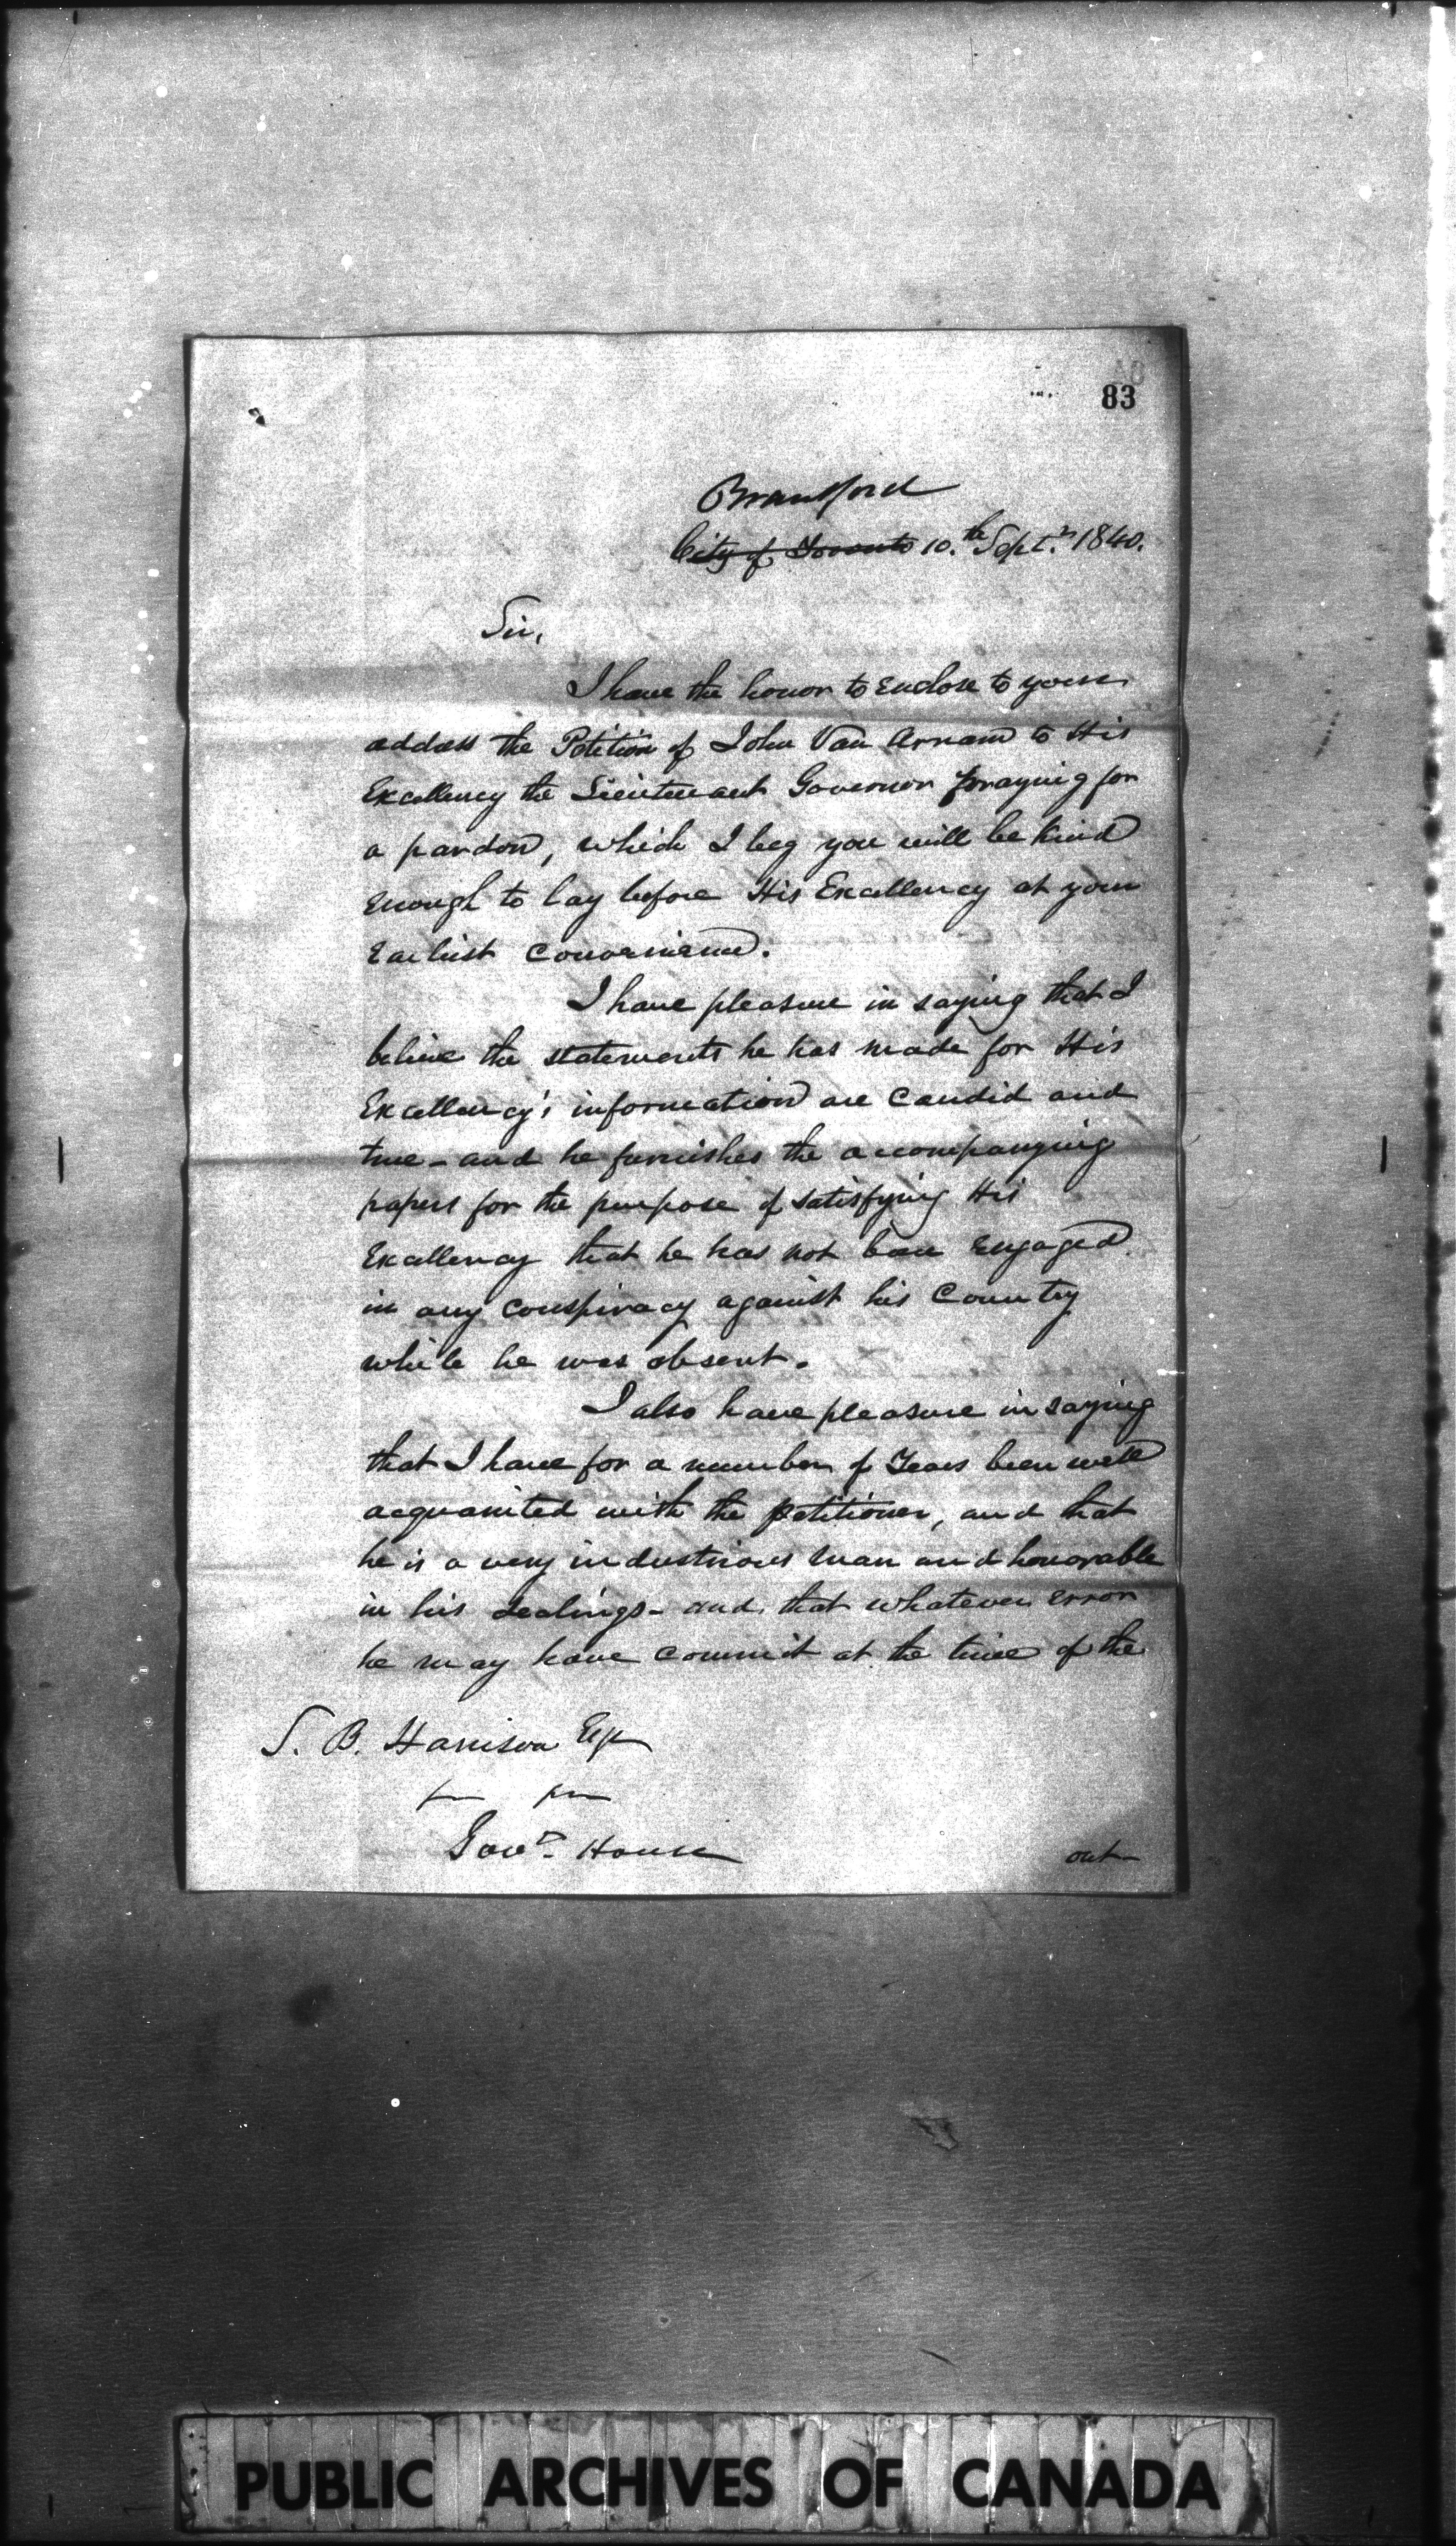 83
Brantford
City of Toronto 10.th Septr. 1840.
Sir,
I have the honor to Enclose to your
address the Petition of John Van Arnam to His
Excellency the Lieutenant Governor praying for
a pardon, which I beg you will be kind
Enough to lay before His Excellency at your
Earliest Convenience.
I have pleasure in saying that I
believe the statements he has made for His
Excellency's information are Candid and
true - and he furnishes the accompanying
papers for the purpose of satisfying His
Excellency that he has not been Engaged
in any Conspiracy against his Country
while he was absent.
I also have pleasure in saying
that I have for a number of Years been well
acquainted with the petitioner, and that
he is a very industrious man and honorable
in his dealings - and that whatever Error
he may have Commit at the time of the
S. B. Harrison Esqr
Govt. House
out
PUBLIC ARCHIVES OF CANADA